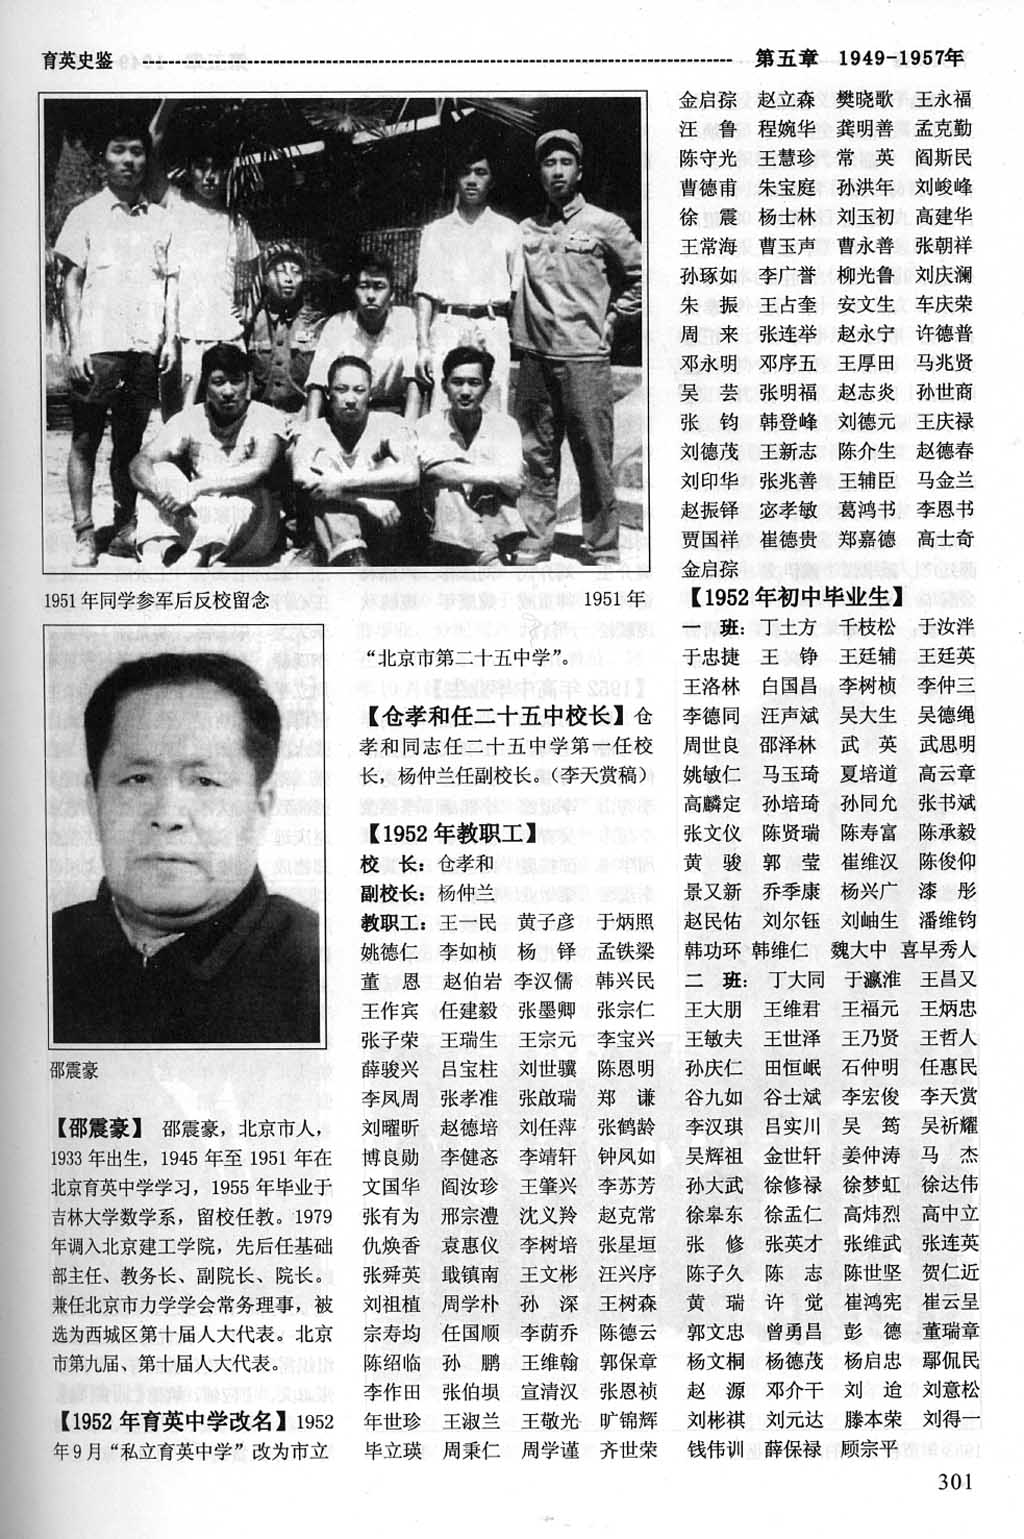 育英史鉴 第五章 1949-1957年
1951年同学参军后反校留念 1951年
邵震豪
【邵震豪】 邵震豪，北京市人，
1933年出生，1945年至1951年在
北京育英中学学习，1955年毕业于
吉林大学数学系，留校任教。1979
年调入北京建工学院，先后任基础
部主任、教务长、副院长、院长。
兼任北京市力学学会常务理事，被
选为西城区第十届人大代表。北京
市第九届、第十届人大代表。
【1952年育英中学改名】1952
年9月“私立育英中学”改为市立
“北京市第二十五中学”。
【仓孝和任二十五中校长】仓
孝和同志任二十五中学第一任校
长，杨仲兰任副校长。（李天赏稿）
【1952年教职工】
校　长：仓孝和
副校长：杨仲兰
教职工：王一民 黄子彦 于炳照
姚德仁 李如桢 杨　铎 孟铁梁
董　恩 赵伯岩 李汉儒 韩兴民
王作宾 任建毅 张墨卿 张宗仁
张子荣 王瑞生 王宗元 李宝兴
薛骏兴 吕宝柱 刘世骥 陈恩明
李凤周 张孝准 张啟瑞 郑　谦
刘曜昕 赵德培 刘任萍 张鹤龄
博良勋 李健吝 李靖轩 钟凤如
文国华 阎汝珍 王肇兴 李苏芳
张有为 邢宗澧 沈义羚 赵克常
仇焕香 袁惠仪 李树培 张星垣
张舜英 戢镇南 王文彬 汪兴序
刘祖植 周学朴 孙　深 王树森
宗寿均 任国顺 李荫乔 陈德云
陈绍临 孙　鹏 王维翰 郭保章
李作田 张伯埙 宣清汉 张恩祯
年世珍 王淑兰 王敬光 旷锦辉
毕立瑛 周秉仁 周学谨 齐世荣
金启孮 赵立森 樊晓歌 王永福
汪　鲁 程婉华 龚明善 孟克勤
陈守光 王慧珍 常　英 阎斯民
曹德甫 朱宝庭 孙洪年 刘峻峰
徐　震 杨士林 刘玉初 高建华
王常海 曹玉声 曹永善 张朝祥
孙琢如 李广誉 柳光鲁 刘庆澜
朱　振 王占奎 安文生 车庆荣
周　来 张连举 赵永宁 许德普
邓永明 邓序五 王厚田 马兆贤
吴　芸 张明福 赵志炎 孙世商
张　钧 韩登峰 刘德元 王庆禄
刘德茂 王新志 陈介生 赵德春
刘印华 张兆善 王辅臣 马金兰
赵振铎 宓孝敏 葛鸿书 李恩书
贾国祥 崔德贵 郑嘉德 高士奇
金启孮
【1952年初中毕业生】
一　班：丁土方 千枝松 于汝泮
于忠捷 王　铮 王廷辅 王廷英
王洛林 白国昌 李树桢 李仲三
李德同 汪声斌 吴大生 吴德绳
周世良 邵泽林 武　英 武思明
姚敏仁 马玉琦 夏培道 高云章
高麟定 孙培琦 孙同允 张书斌
张文仪 陈贤瑞 陈寿富 陈承毅
黄　骏 郭　莹 崔维汉 陈俊仰
景又新 乔季康 杨兴广 漆　彤
赵民佑 刘尔钰 刘岫生 潘维钧
韩功环 韩维仁 魏大中 喜早秀人
二　班：丁大同 于瀛淮 王昌又
王大朋 王维君 王福元 王炳忠
王敏夫 王世泽 王乃贤 王哲人
孙庆仁 田恒岷 石仲明 任惠民
谷九如 谷士斌 李宏俊 李天赏
李汉琪 吕实川 吴　筠 吴祈耀
吴辉祖 金世轩 姜仲涛 马　杰
孙大武 徐修禄 徐梦虹 徐达伟
徐皋东 徐孟仁 高炜烈 高中立
张　修 张英才 张维武 张连英
陈子久 陈　志 陈世坚 贺仁近
黄　瑞 许　觉 崔鸿宪 崔云呈
郭文忠 曾勇昌 彭　德 董瑞章
杨文桐 杨德茂 杨启忠 鄢侃民
赵　源 邓介干 刘　迨 刘意松
刘彬祺 刘元达 滕本荣 刘得一
钱伟训 薛保禄 顾宗平
301